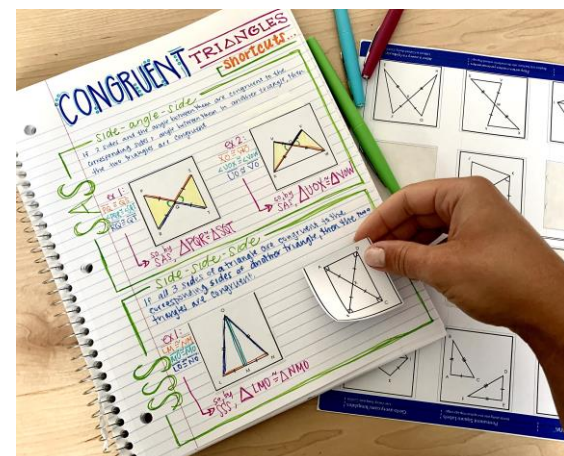 CONGRUENT TRIANGLES
shortcuts...
SAS
side-angle-side
If 2 sides and the angle between them are congruent to the
corresponding sides & angle between them in another triangle, then
the two triangles are congruent.
ex 1:
RQ ≅ TQ
so, by
SAS, △PQR ≅ △SQT
ex 2:
XO ≅ WO
∠UOX ≅ ∠VOW
UO ≅ VO
so, by
SAS, △UOX ≅ △VOW
SSS
side-side-side
If all 3 sides of a triangle are congruent to the
corresponding sides of another triangle, then the two
triangles are congruent.
ex 1:
LM ≅ NM
MO ≅ MO
LO ≅ NO
so, by
SSS, △LMO ≅ △NMO